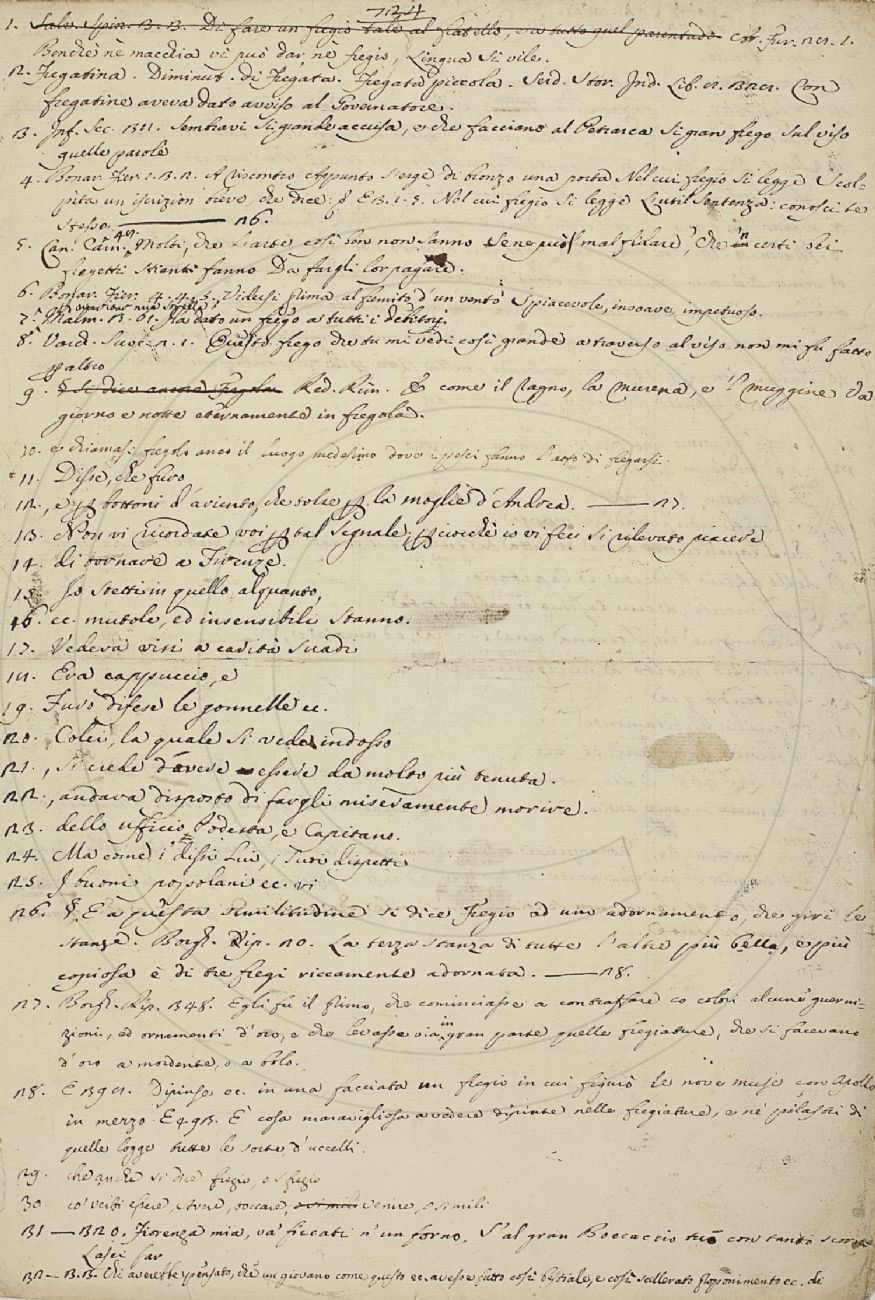 724
1. Salv. Spin. 3. 3. Di fare un fregio tale al fratello, e a tutto quel parentado. cot. Fur. 2.
Benchè nè macchia vi può dar, nè fregio, Lingua sì vile.
2. Fregatina. Diminut. di Fregata. Fregata piccola. Serd. Stor. Ind. Lib. Con
fregatine aveva dato avviso al Governatore.
3. Inf. Sec. 311. Sembravi sì grande accusa, e che facciano al Petrarca sì gran frego sul viso
quelle parole
4. Bonar. Fier. 1. 3. 2. A riscontro appunto s'erge di bronzo una porta Nel cui fregio si legge Scol-
pita un iscrizion breve, che dice: § E 3. 1. 5. Nel cui fregio si legge L'util sentenza: conosci te
stesso. 26.
5. Can. Carn. 47. Molti, che l'arte così ben non sanno Se ne può mal fidare, Che 'n certi
fregetti stianti fanno Da fargli lor pagare.
6. Bonar. Fier. 4. 4. 3. Videsi prima al fremito d'un vento Spiacevole, insoave, impetuoso.
7. Malm. 3. 61. Ha dato un frego a tutti i debitori
8. Varch. Suoc. 2. 1. Questo frego che tu mi vedi così grande a traverso al viso non mi fu fatto
p altro
9. § Si dice ancora Fregola Red. Rim. E come il Ragno, la murena, e 'l muggine Va
giorno e notte eternamente in fregola.
10. e chiamasi fregolo anco il luogo medesimo dove i pesci fanno l'atto di fregarsi.
11. Disse, che furo
12. , e p bottoni d'ariento, che tolse p la moglie d'Andrea. 27.
13. Non vi ricordate voi p tal segnale, p ciocchè io vi feci sì rilevato piacere
14. di tornare a Firenze.
15. Io stetti in quello alquanto,
16. ec. mutole, ed insensibili stanno.
17. Vedeva visi a carità suadi
18. Era cappuccio, e
19. Furo difese le gonnelle ec.
20. Colei, la quale si vede indosso
21. , si crede d'avere essere da molto più tenuta.
22. , andava disposto di fargli miseramente morire.
23. dello ufficio Podestà, e Capitano.
24. Ma come i' dissi Lui, i Tuoi dispetti
25. I buoni popolani ec. vi
26. §. E a questa similitudine si dice Fregio ad uno adornamento, che giri le
stanze. Borgh. Rip. 20. La terza stanza di tutte l'altre più bella, e più
copiosa è di tre fregi riccamente adornata. 28.
27. Borgh. Rip. 348. Egli fu il primo, che cominciasse a contraffare co colori alcune guerni-
zioni, ed ornamenti d'oro, e che levasse via in gran parte quelle fregiature, che si facevano
d'oro a mordente, o a bolo.
28. E 392. Dipinse ec. in una facciata un fregio in cui figurò le nove muse con Apollo
in mezzo E 493. È cosa maravigliosa a vedere dipinte nelle fregiature, e ne' pilastri di
quelle logge tutte le sorte d'uccelli.
29. che anche si dice fregio, o sfregio
30 co' verbi essere, stare, toccare, o simili venire, o simili
31 — 320. Fiorenza mia, va' ficcati 'n un forno, S'al gran Boccaccio tuo con tanto scorno
Lasci far
32 — 3.3. Chi averebbe pensato, che un giovano come questo ec. avesse fatto così bestiale, e così scellerato proponimento ec. di